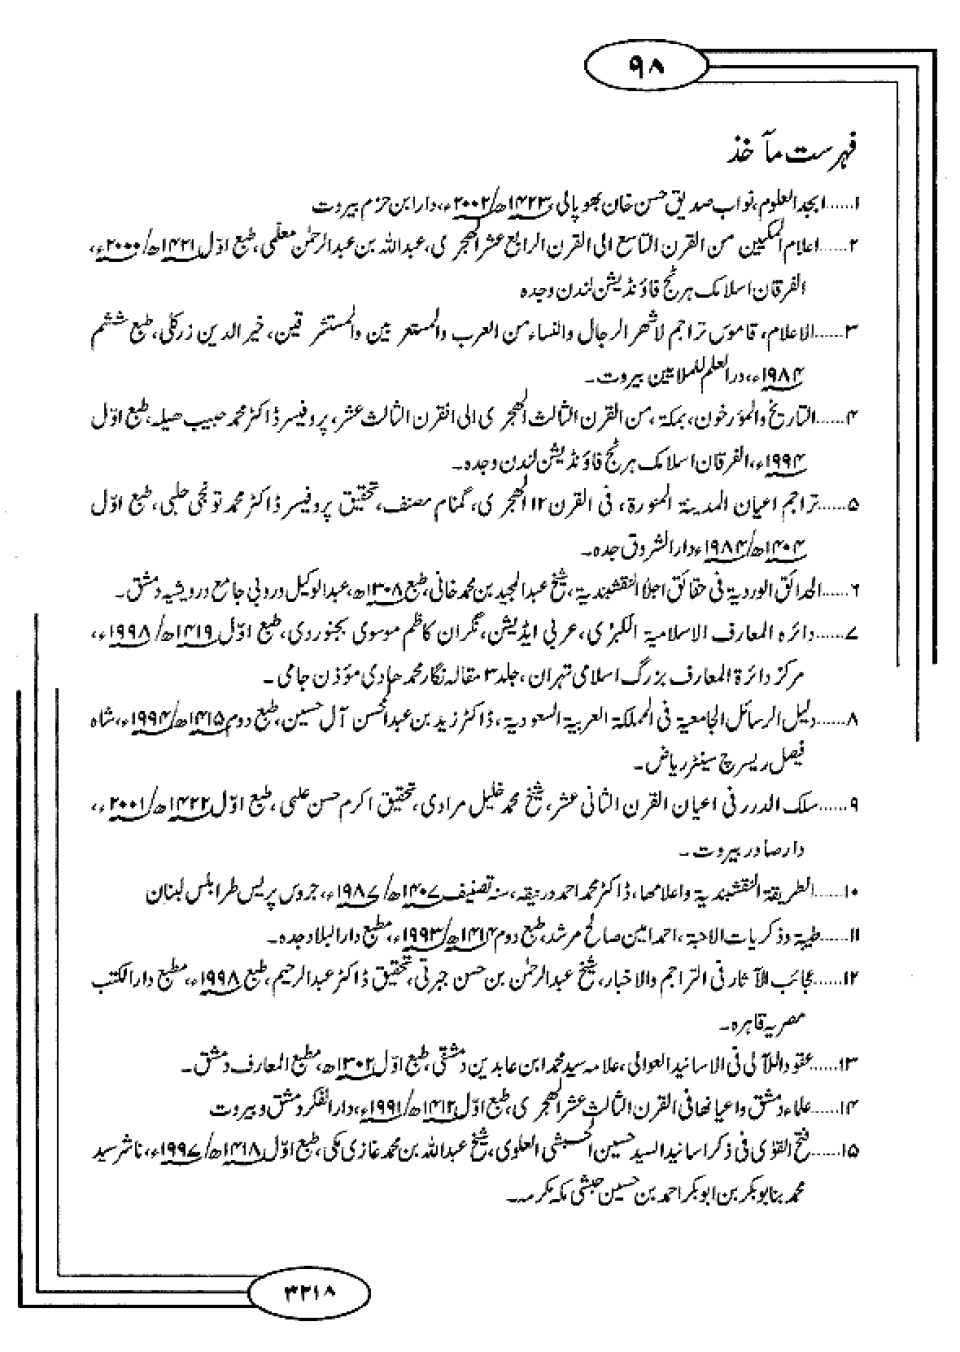 ۹۸
فہرست مآخذ
۱......ابجد العلوم، نواب صدیق حسن خان بھوپالی، ۱۴۲۳ھ/۲۰۰۲ء، دار ابن حزم بیروت
۲......اعلام المکیین من القرن التاسع الی القرن الرابع عشر الھجری، عبداللہ بن عبدالرحمٰن معلمی، طبع اوّل ۱۴۲۱ھ/۲۰۰۰ء،
الفرقان اسلامک ہرٹیج فاؤنڈیشن لندن وجدہ
۳......الاعلام، قاموس تراجم لاشھر الرجال والنساء من العرب والمستعربین والمستشرقین، خیر الدین زرکلی، طبع ششم
۱۹۸۴ء، در العلم للملایین بیروت۔
۴......التاریخ والمؤرخون، بمکۃ، من القرن الثالث الھجری الی افقرن الثالث عشر، پروفیسر ڈاکٹر محمد حبیب ھیلہ، طبع اوّل
۱۹۹۴ء، الفرقان اسلامک ہرٹیج فاؤنڈیشن لندن وجدہ۔
۵......تراجم اعیان المدینۃ المنورۃ، فی القرن ۱۲ الھجری، گمنام مصنف، تحقیق پروفیسر ڈاکٹر محمد تونجی حلبی، طبع اوّل
۱۴۰۴ھ/۱۹۸۴ء دار الشروق جدہ۔
۶......الحدائق الوردیۃ فی حقائق اجلاء النقشبندیۃ، شیخ عبدالمجید بن محمد خانی، طبع ۱۳۰۸ھ، عبدالوکیل دروبی جامع درویشیہ دمشق۔
۷......دائرہ المعارف الاسلامیۃ الکبرٰی، عربی ایڈیشن، نگران کاظم موسوی بجنوردی، طبع اوّل ۱۴۱۹ھ/۱۹۹۸ء،
مرکز دائرۃ المعارف بزرگ اسلامی تہران، جلد ۳ مقالہ نگار محمد ھادی مؤذن جامی۔
۸......دلیل الرسائل الجامعیۃ فی المملکۃ العربیۃ السعودیۃ، ڈاکٹر زید بن عبدالحسن آل حسین، طبع دوم ۱۴۱۵ھ/۱۹۹۴ء، شاہ
فیصل ریسرچ سینٹر ریاض۔
۹......سلک الدرر فی اعیان القرن الثانی عشر، شیخ محمد خلیل مرادی، تحقیق اکرم حسن علبی، طبع اوّل ۱۴۲۲ھ/۲۰۰۱ء،
دار صادر بیروت۔
۱۰......الطریقۃ النقشبندیۃ واعلامھا، ڈاکٹر محمد احمد درنیقہ، سنہ تصنیف ۱۴۰۷ھ/۱۹۸۷ء، جروس پریس طرابلس لبنان
۱۱......طیبۃ وذکریات الاحبۃ، احمد امین صالح مرشد، طبع دوم ۱۴۱۴ھ/۱۹۹۳ء، مطبع دار البلاد جدہ۔
۱۲......عجائب الآثار فی التراجم والاخبار، شیخ عبدالرحمٰن بن حسن جبرتی، تحقیق ڈاکٹر عبدالرحیم، طبع ۱۹۹۸ء، مطبع دار الکتب
مصریہ قاہرہ۔
۱۳......عقود اللآلی فی الاسانید العوالی، علامہ سید محمد ابن عابدین دمشقی، طبع اوّل ۱۳۰۲ھ، مطبع المعارف دمشق۔
۱۴......علماء دمشق واعیانھا فی القرن الثالث عشر الھجری، طبع اوّل ۱۴۱۲ھ/۱۹۹۱ء، دار الفکر دمشق وبیروت
۱۵......فتح القوٰی فی ذکر اسانید السید حسین الحبشی العلوی، شیخ عبداللہ بن محمد غازی مکی، طبع اوّل ۱۴۱۸ھ/۱۹۹۷ء، ناشر سید
محمد بنابوبکر بن ابوبکر احمد بن حسین حبشی مکہ مکرمہ۔
۳۲۱۸